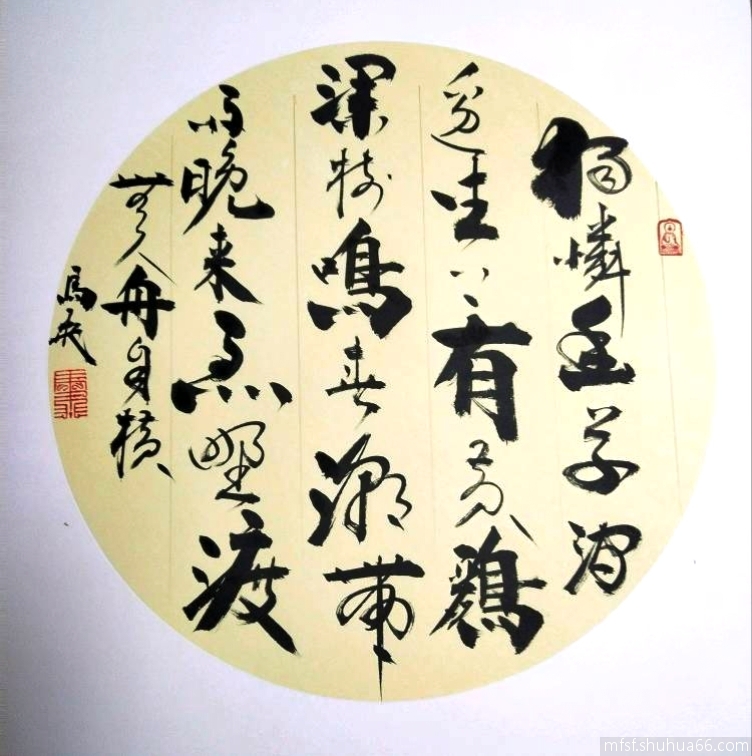 獨憐幽草澗
邊生上有黄鸝
深樹鳴春潮帶
雨晚来急野渡
無人舟自横
馬
mfsf.shuhua66.com